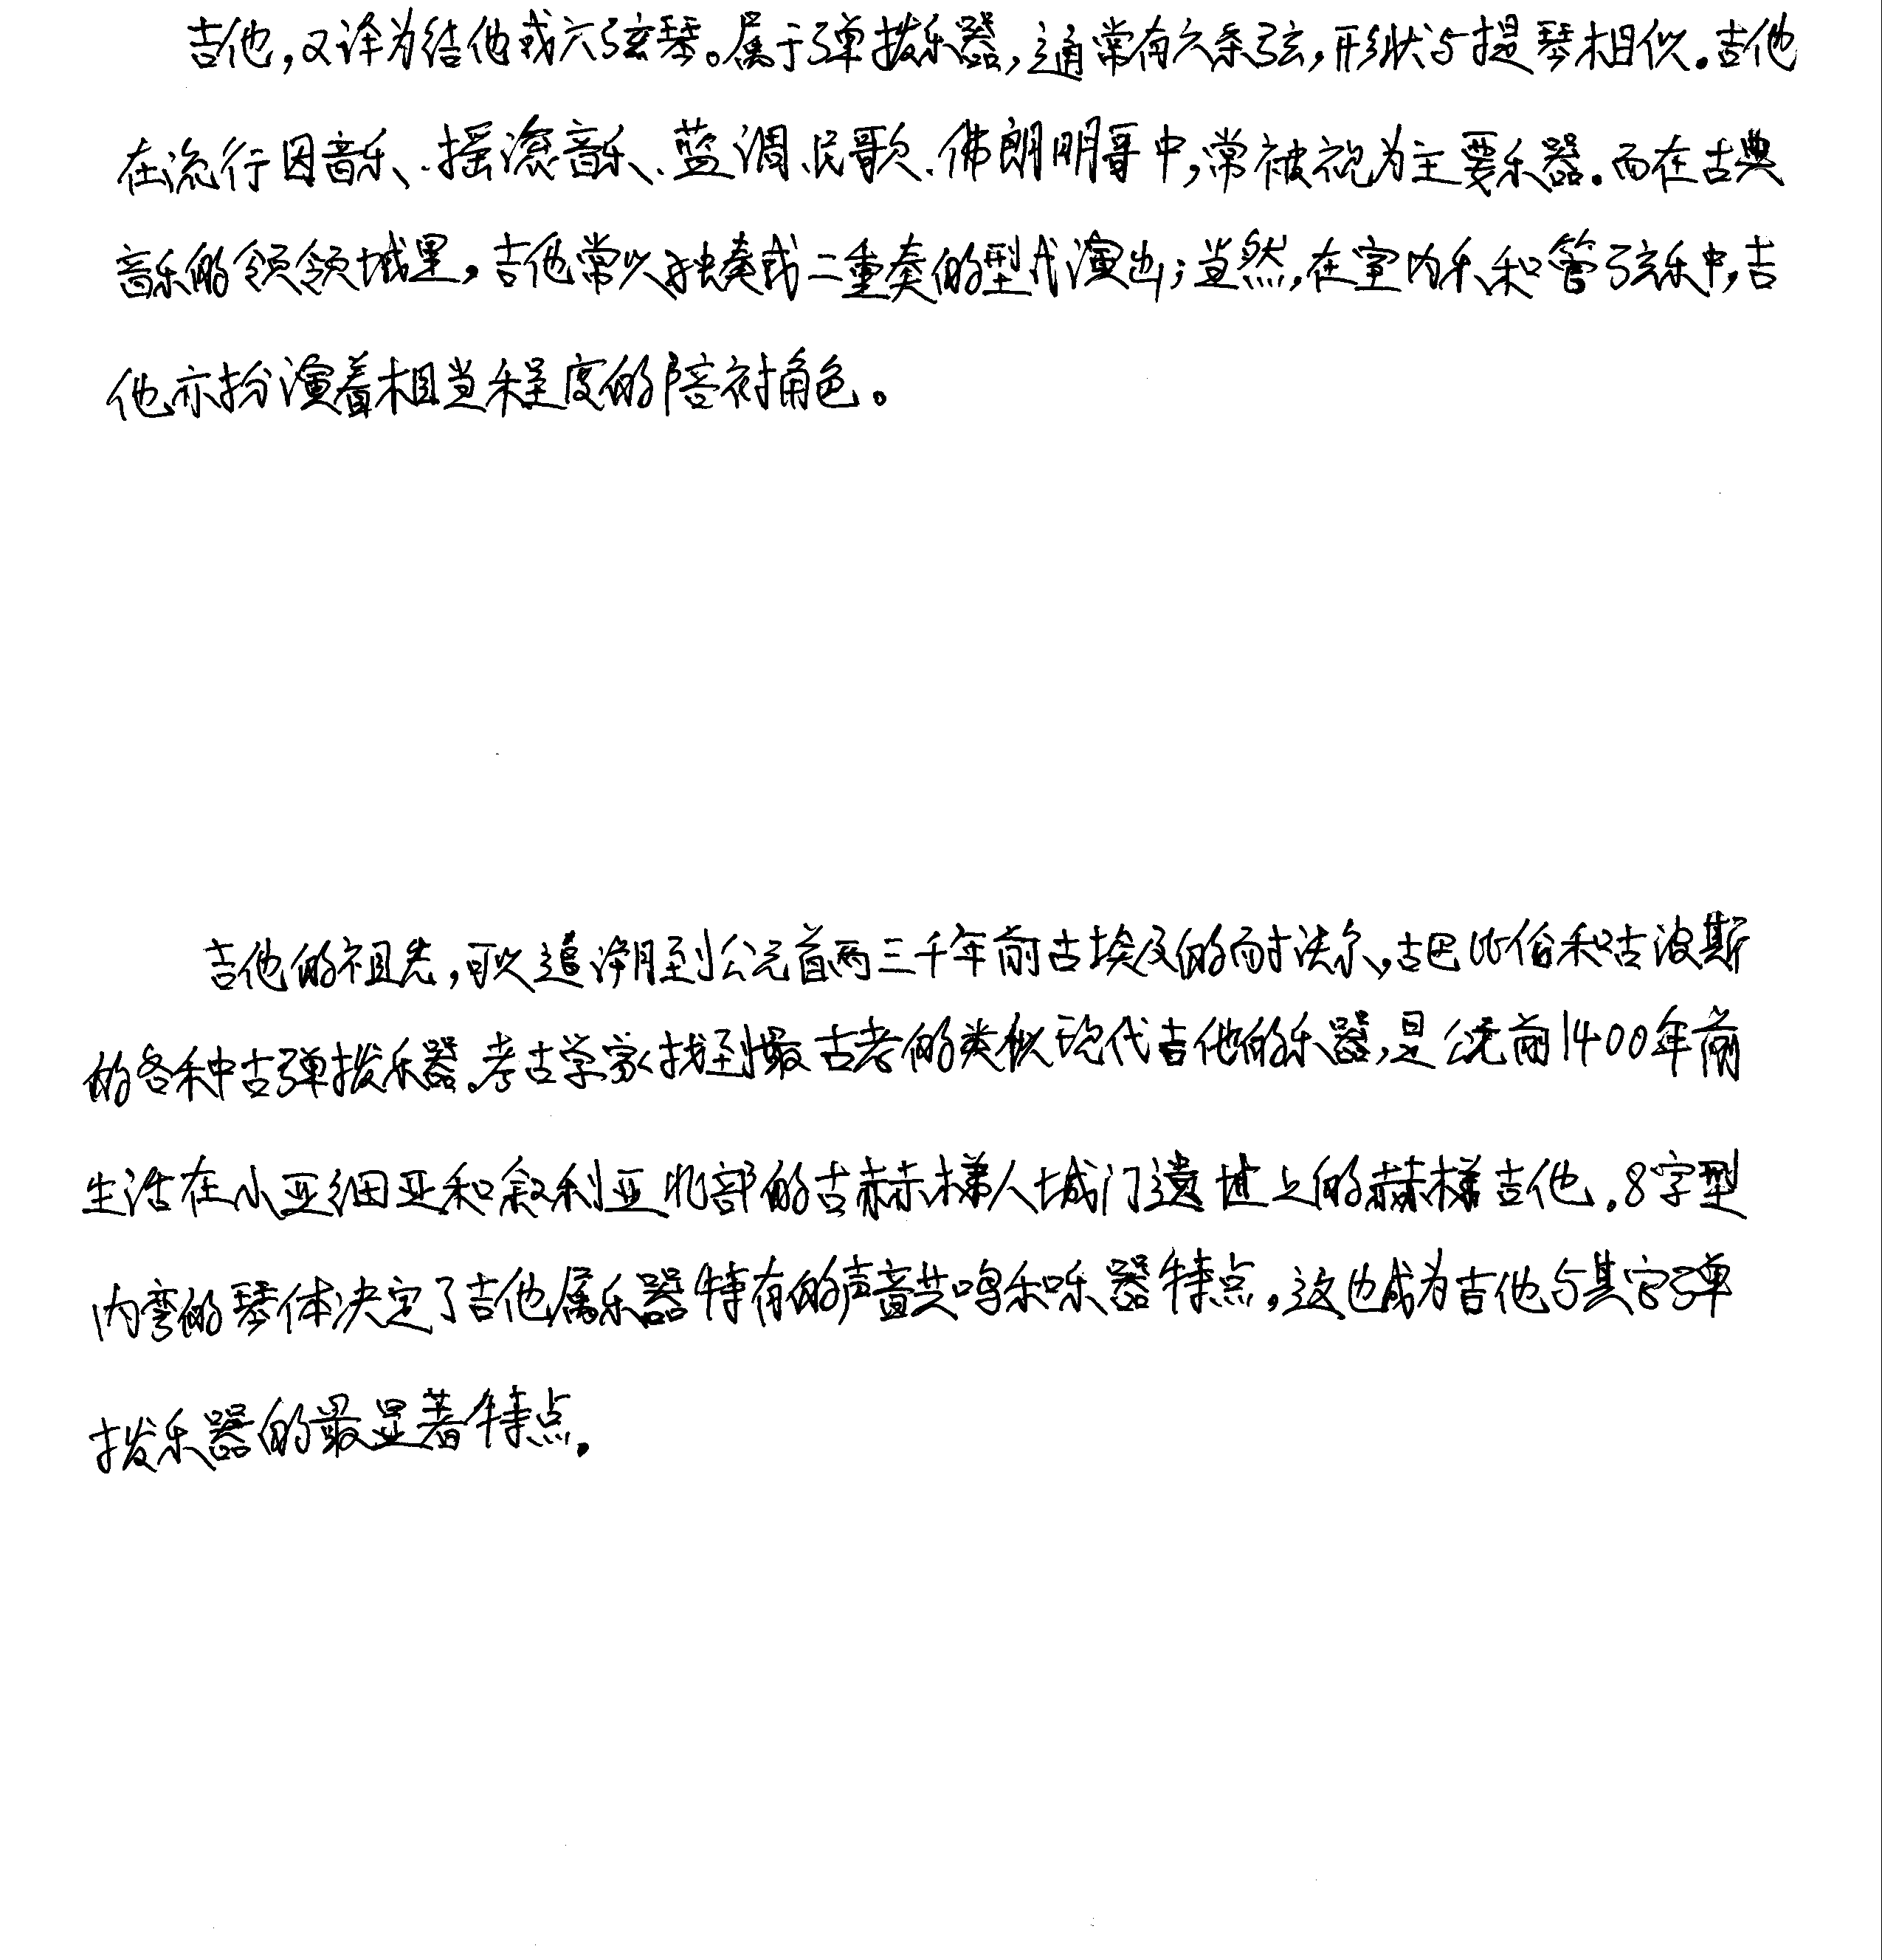 吉他,又译为结他或六弦琴。属于弹拨乐器,通常有六条弦,形状与提琴相似.吉他
在流行因音乐、摇滚音乐、蓝调、民歌、佛朗明哥中,常被视为主要乐器.而在古典
音乐的领领域里,吉他常以独奏或二重奏的型式演出;当然,在室内乐和管弦乐中,吉
他亦扮演着相当程度的陪衬角色。
吉他的祖先,可以追溯到公元首两三千年前古埃及的耐法尔,古巴比伯和古波斯
的各种古弹拨乐器。考古学家找到最古老的类似现代吉他的乐器,是公元前1400年前
生活在小亚细亚和叙利亚北部的古赫梯人城门遗址上的赫梯吉他.8字型
内弯的琴体决定了吉他属乐器特有的声音共鸣和乐器特点,这也成为吉他与其它弹
拨乐器的最显著特点.